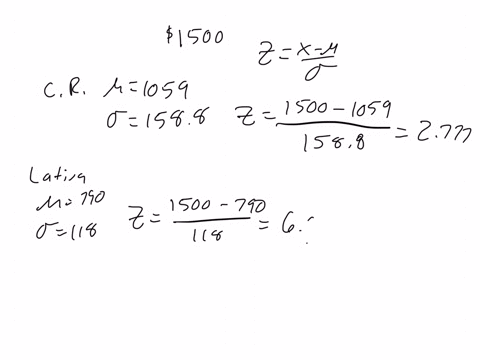 $1500
Z = (x-μ)/σ
C.R. μ=1059
σ=158.8 Z = (1500-1059)/158.8 = 2.777
Latina
μ=790
σ=118 Z = (1500-790)/118 = 6.